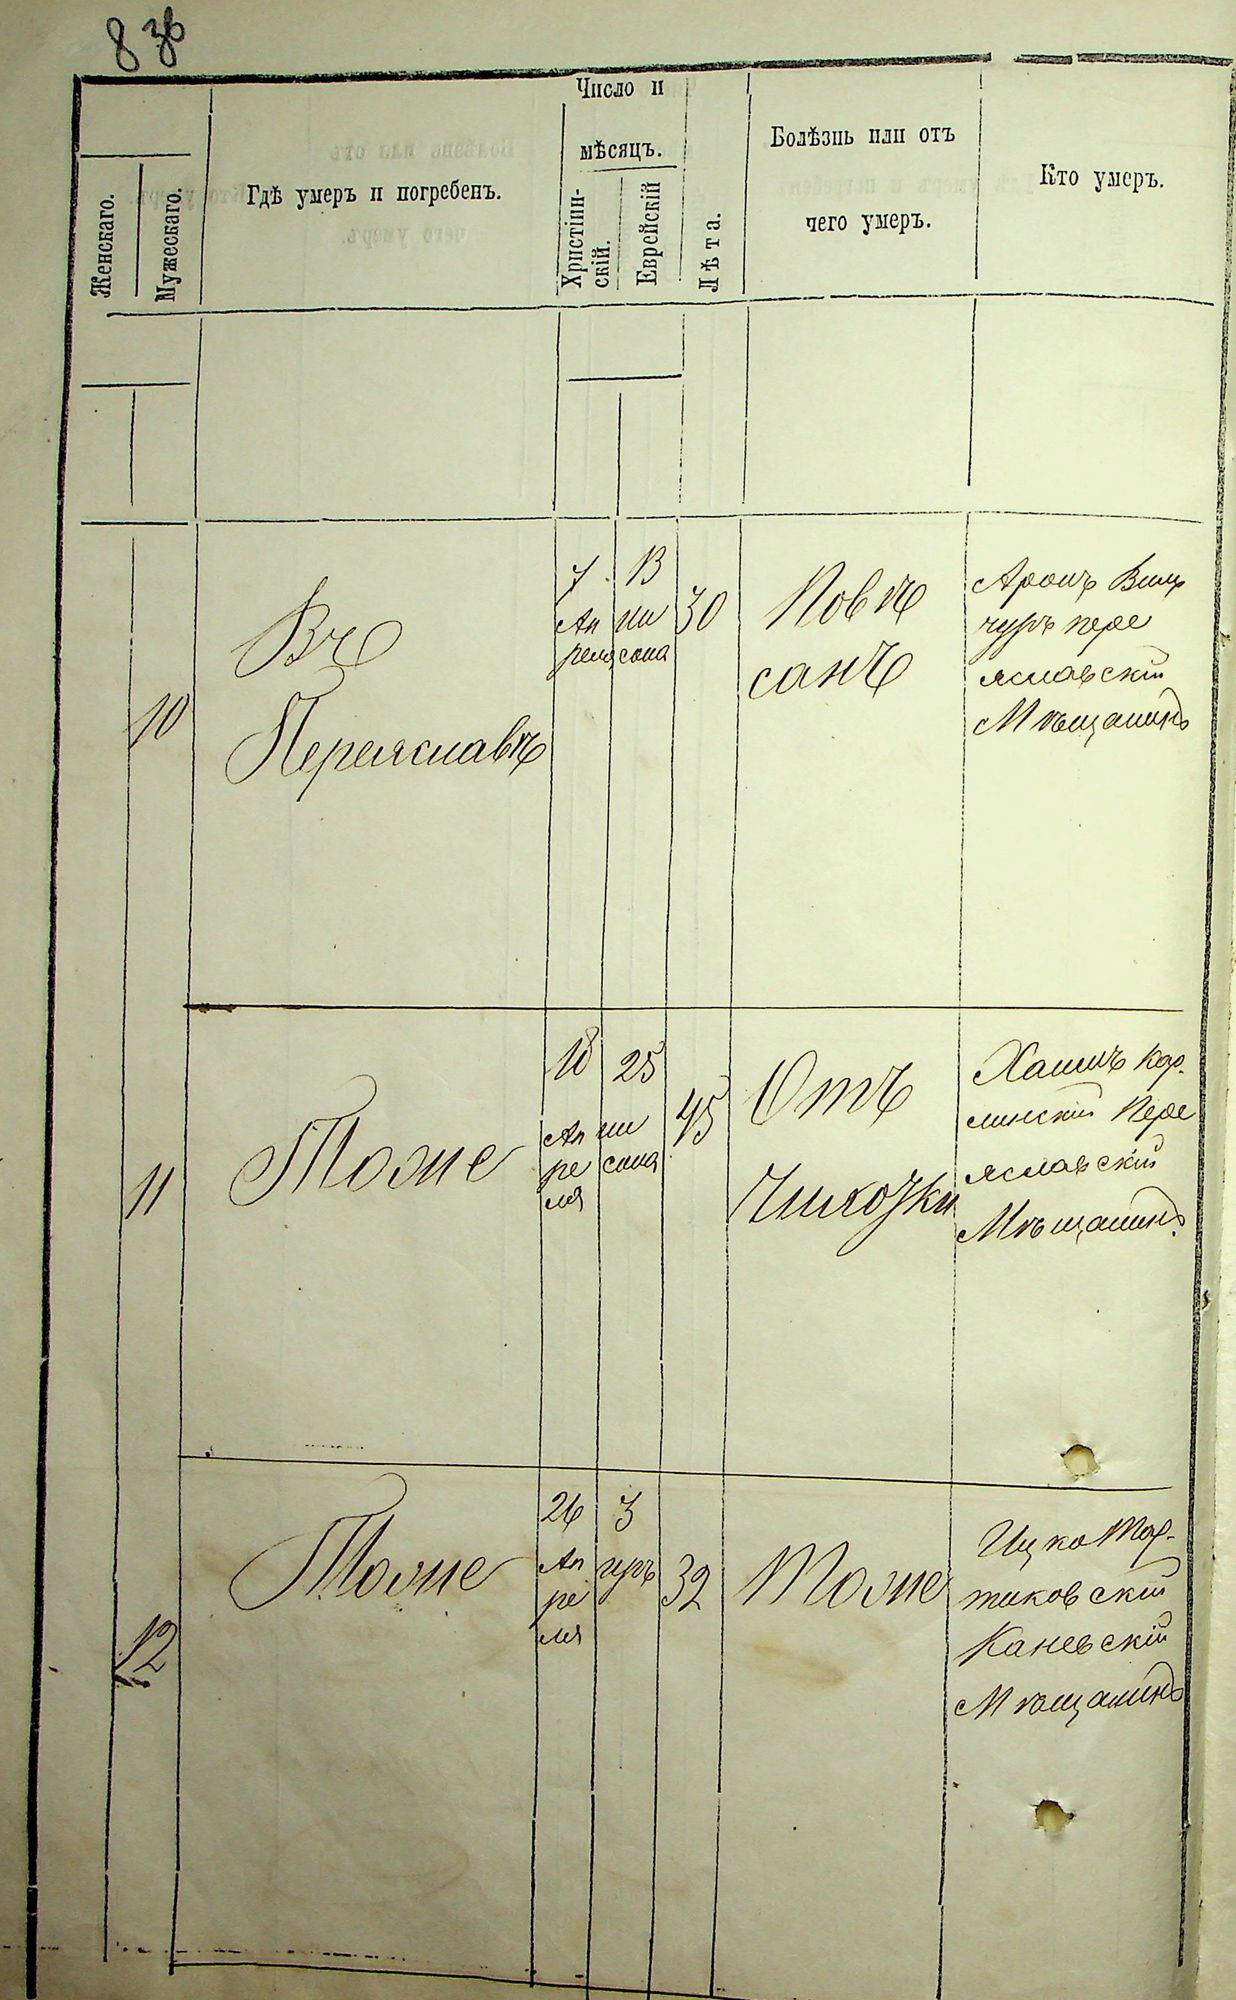 8 зв
Женскаго.
Мужескаго.
Гдѣ умеръ и погребенъ.
Число и
мѣсяцъ.
Христіин-
скій.
Еврейскій
Лѣта.
Болѣзнь или отъ
чего умеръ.
Кто умеръ.
10
Въ
Переяславѣ
7
Ап
реля
13
ни
сона
30
Повѣ
санъ
Аронъ Вин
чуръ пере
яславскій
Мѣщанинъ
11
Тоже
18
Ап
ре
ля
25
ни
сона
45
Отъ
Чихотки
Хаимъ Кар-
линскій Пере
яславскій
Мѣщанинъ.
12
Тоже
26
Ап
ре
ля
3
иръ
32
Тоже
Ицко
Каневскій
Мѣщанинъ